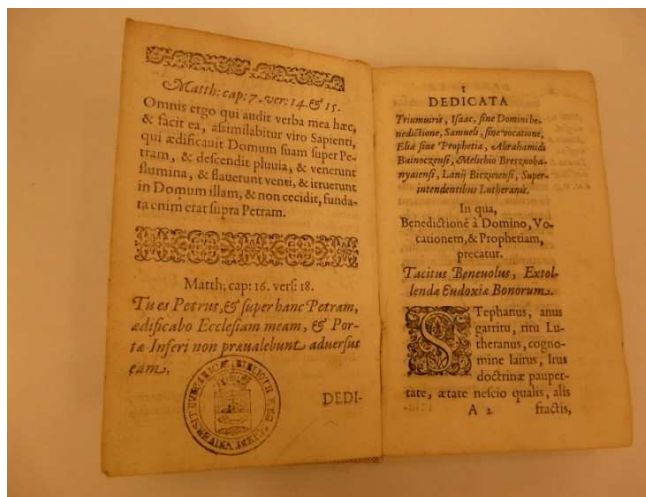 Matth: cap: 7. ver: 14 & 15.
Omnis ergo qui audit verba mea hæc,
& facit ea, assimilabitur viro Sapienti,
qui ædificauit Domum suam super Pe-
tram, & descendit pluuia, & venerunt
flumina, & flauerunt venti, & irruerunt
in Domum illam, & non cecidit, funda-
ta enim erat supra Petram.
Matth: cap: 16. vers: 18.
Tu es Petrus, & super hanc Petram,
ædificabo Ecclesiam meam, & Por-
tæ Inferi non præualebunt adversus
eam,
DEDI-
1
DEDICATA
Triumuiris, Isaac, sine Domini be-
nedictione, Samueli, sine vocatione,
Eliæ sine Prophetia, Abrahamidi
Melchio
Lanij Super-
intendentibus Lutheranis.
In qua,
Benedictionē à Domino, Vo-
cationem, & Prophetiam,
precatur.
Tacitus Benevolus, Extol-
lendæ Eudoxiæ Bonorum.
STephanus, anus
garritu, ritu Lu-
theranus, cogno-
mine Iairus, Irus
doctrinæ pauper-
tate, ætate nescio qualis, alis
A 2 fractis,